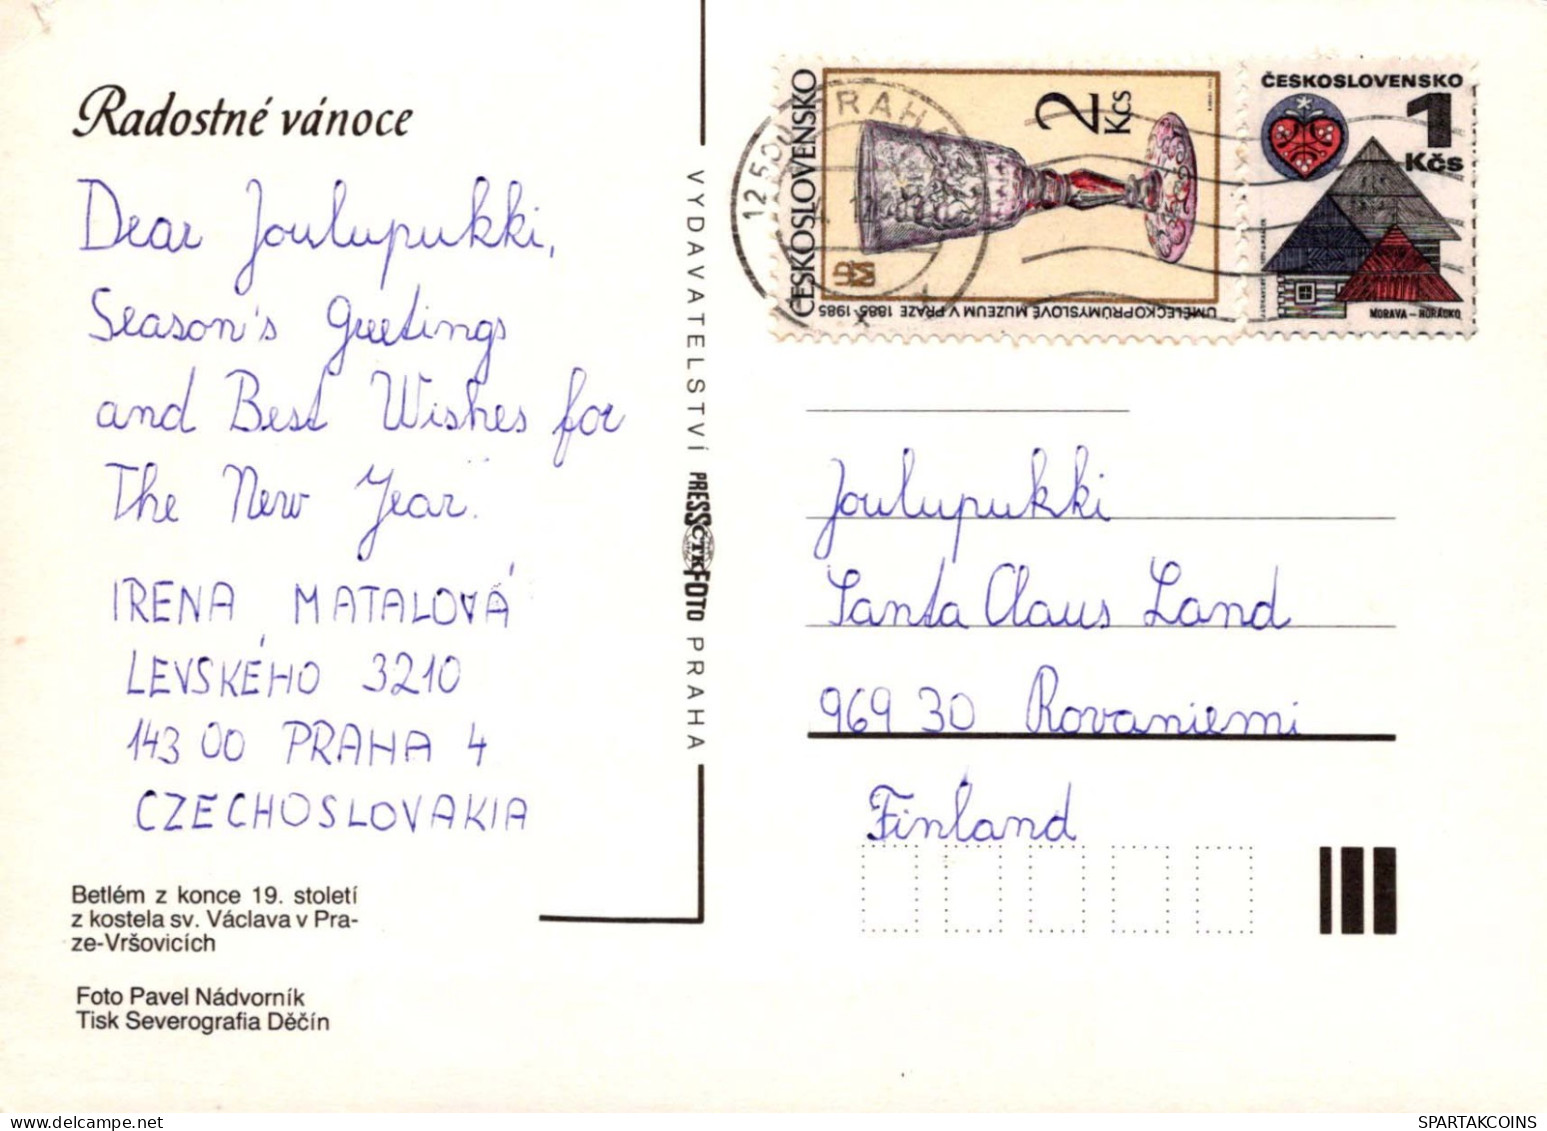 Radostné vánoce
Dear Joulupukki,
Season's Greetings
and Best Wishes for
The New Year.
IRENA MATALOVÁ
LEVSKÉHO 3210
143 00 PRAHA 4
CZECHOSLOVAKIA
Betlém z konce 19. století
z kostela sv. Václava v Pra-
ze-Vršovicích
Foto Pavel Nádvorník
Tisk Severografia Děčín
VYDAVATELSTVÍ PRESSFOTO PRAHA
ČTK
ČESKOSLOVENSKO
2 Kčs
UMĚLECKOPRŮMYSLOVÉ MUZEUM V PRAZE 1885-1985
PRAHA
ČESKOSLOVENSKO
1
Kčs
MORAVA – HORÁCKO
Joulupukki
Santa Claus Land
969 30 Rovaniemi
Finland
delcampe.net
SPARTAKCOINS